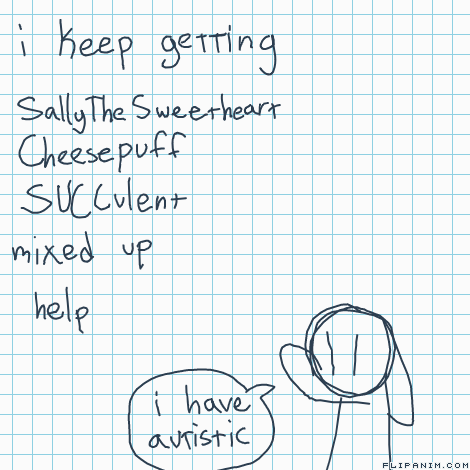 i keep getting
SallyTheSweetheart
Cheesepuff
SUCCulent
mixed up
help
i have
autistic
FLIPANIM.COM